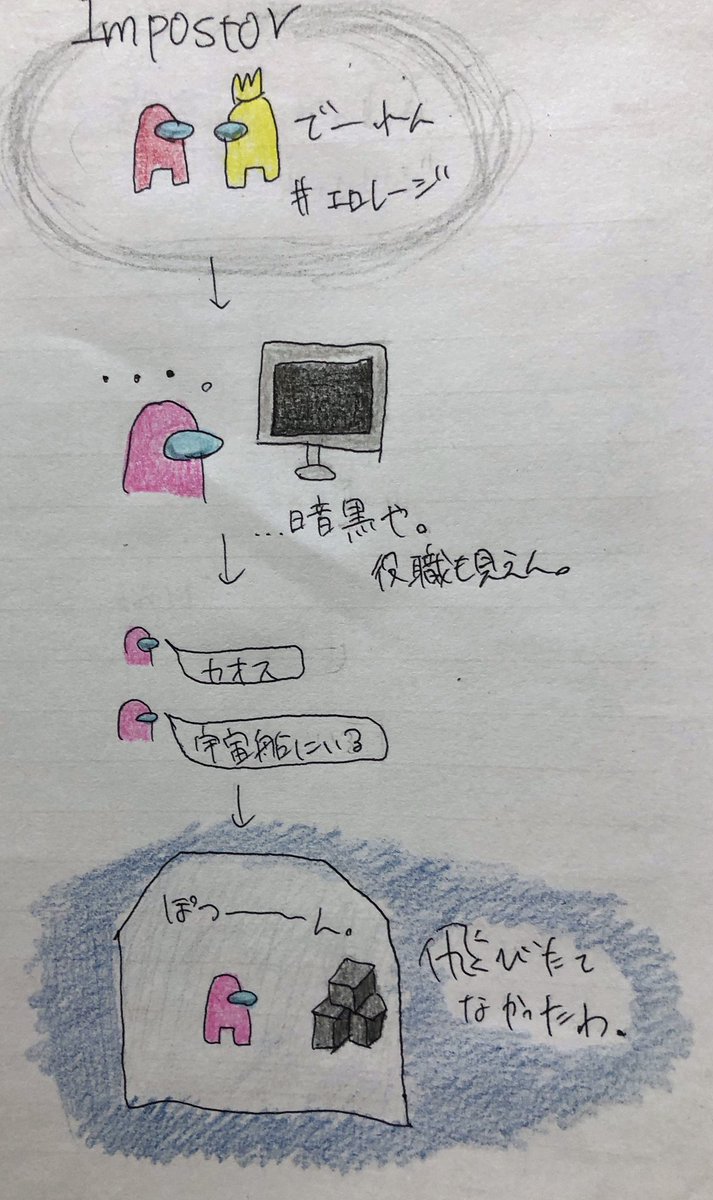 Impostor
でーれん
#エロレージ
・・・。
…暗黒や。
役職も見えん。
カオス
宇宙船にいる
ぽつーーん。
飛びたて
なかったわ。